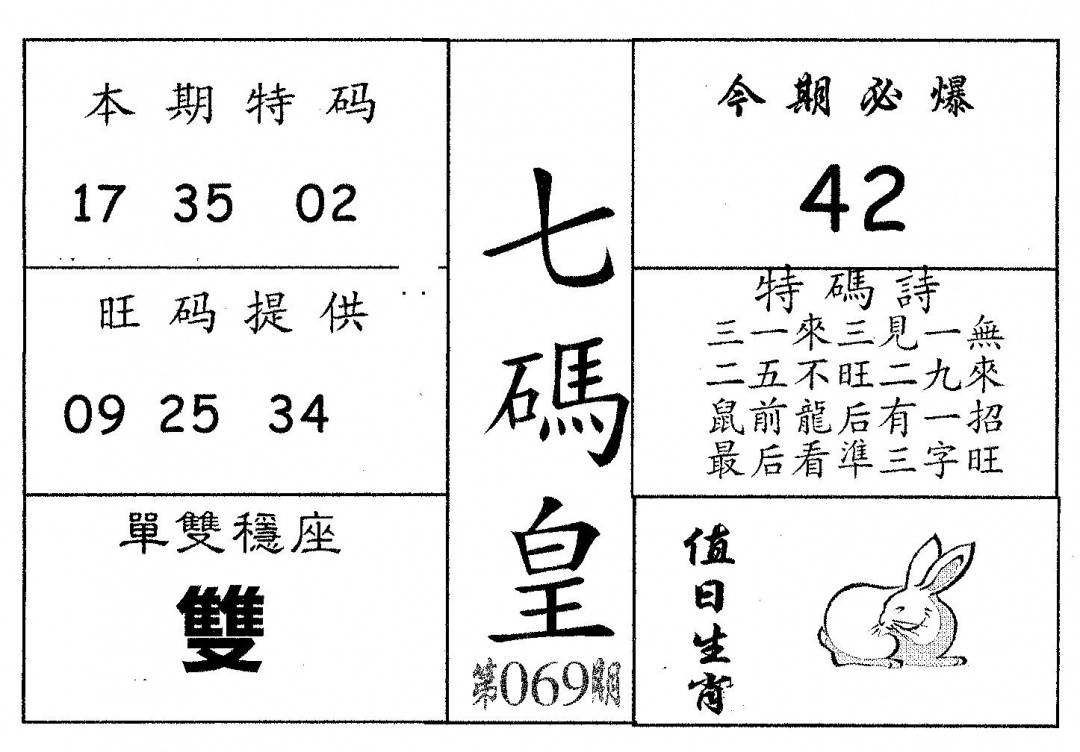 本期特码
17 35 02
旺码提供
09 25 34
單雙穩座
雙
七碼皇
第069期
今期必爆
42
特碼詩
三一來三見一無
二五不旺二九來
鼠前龍后有一招
最后看準三字旺
值日生肖